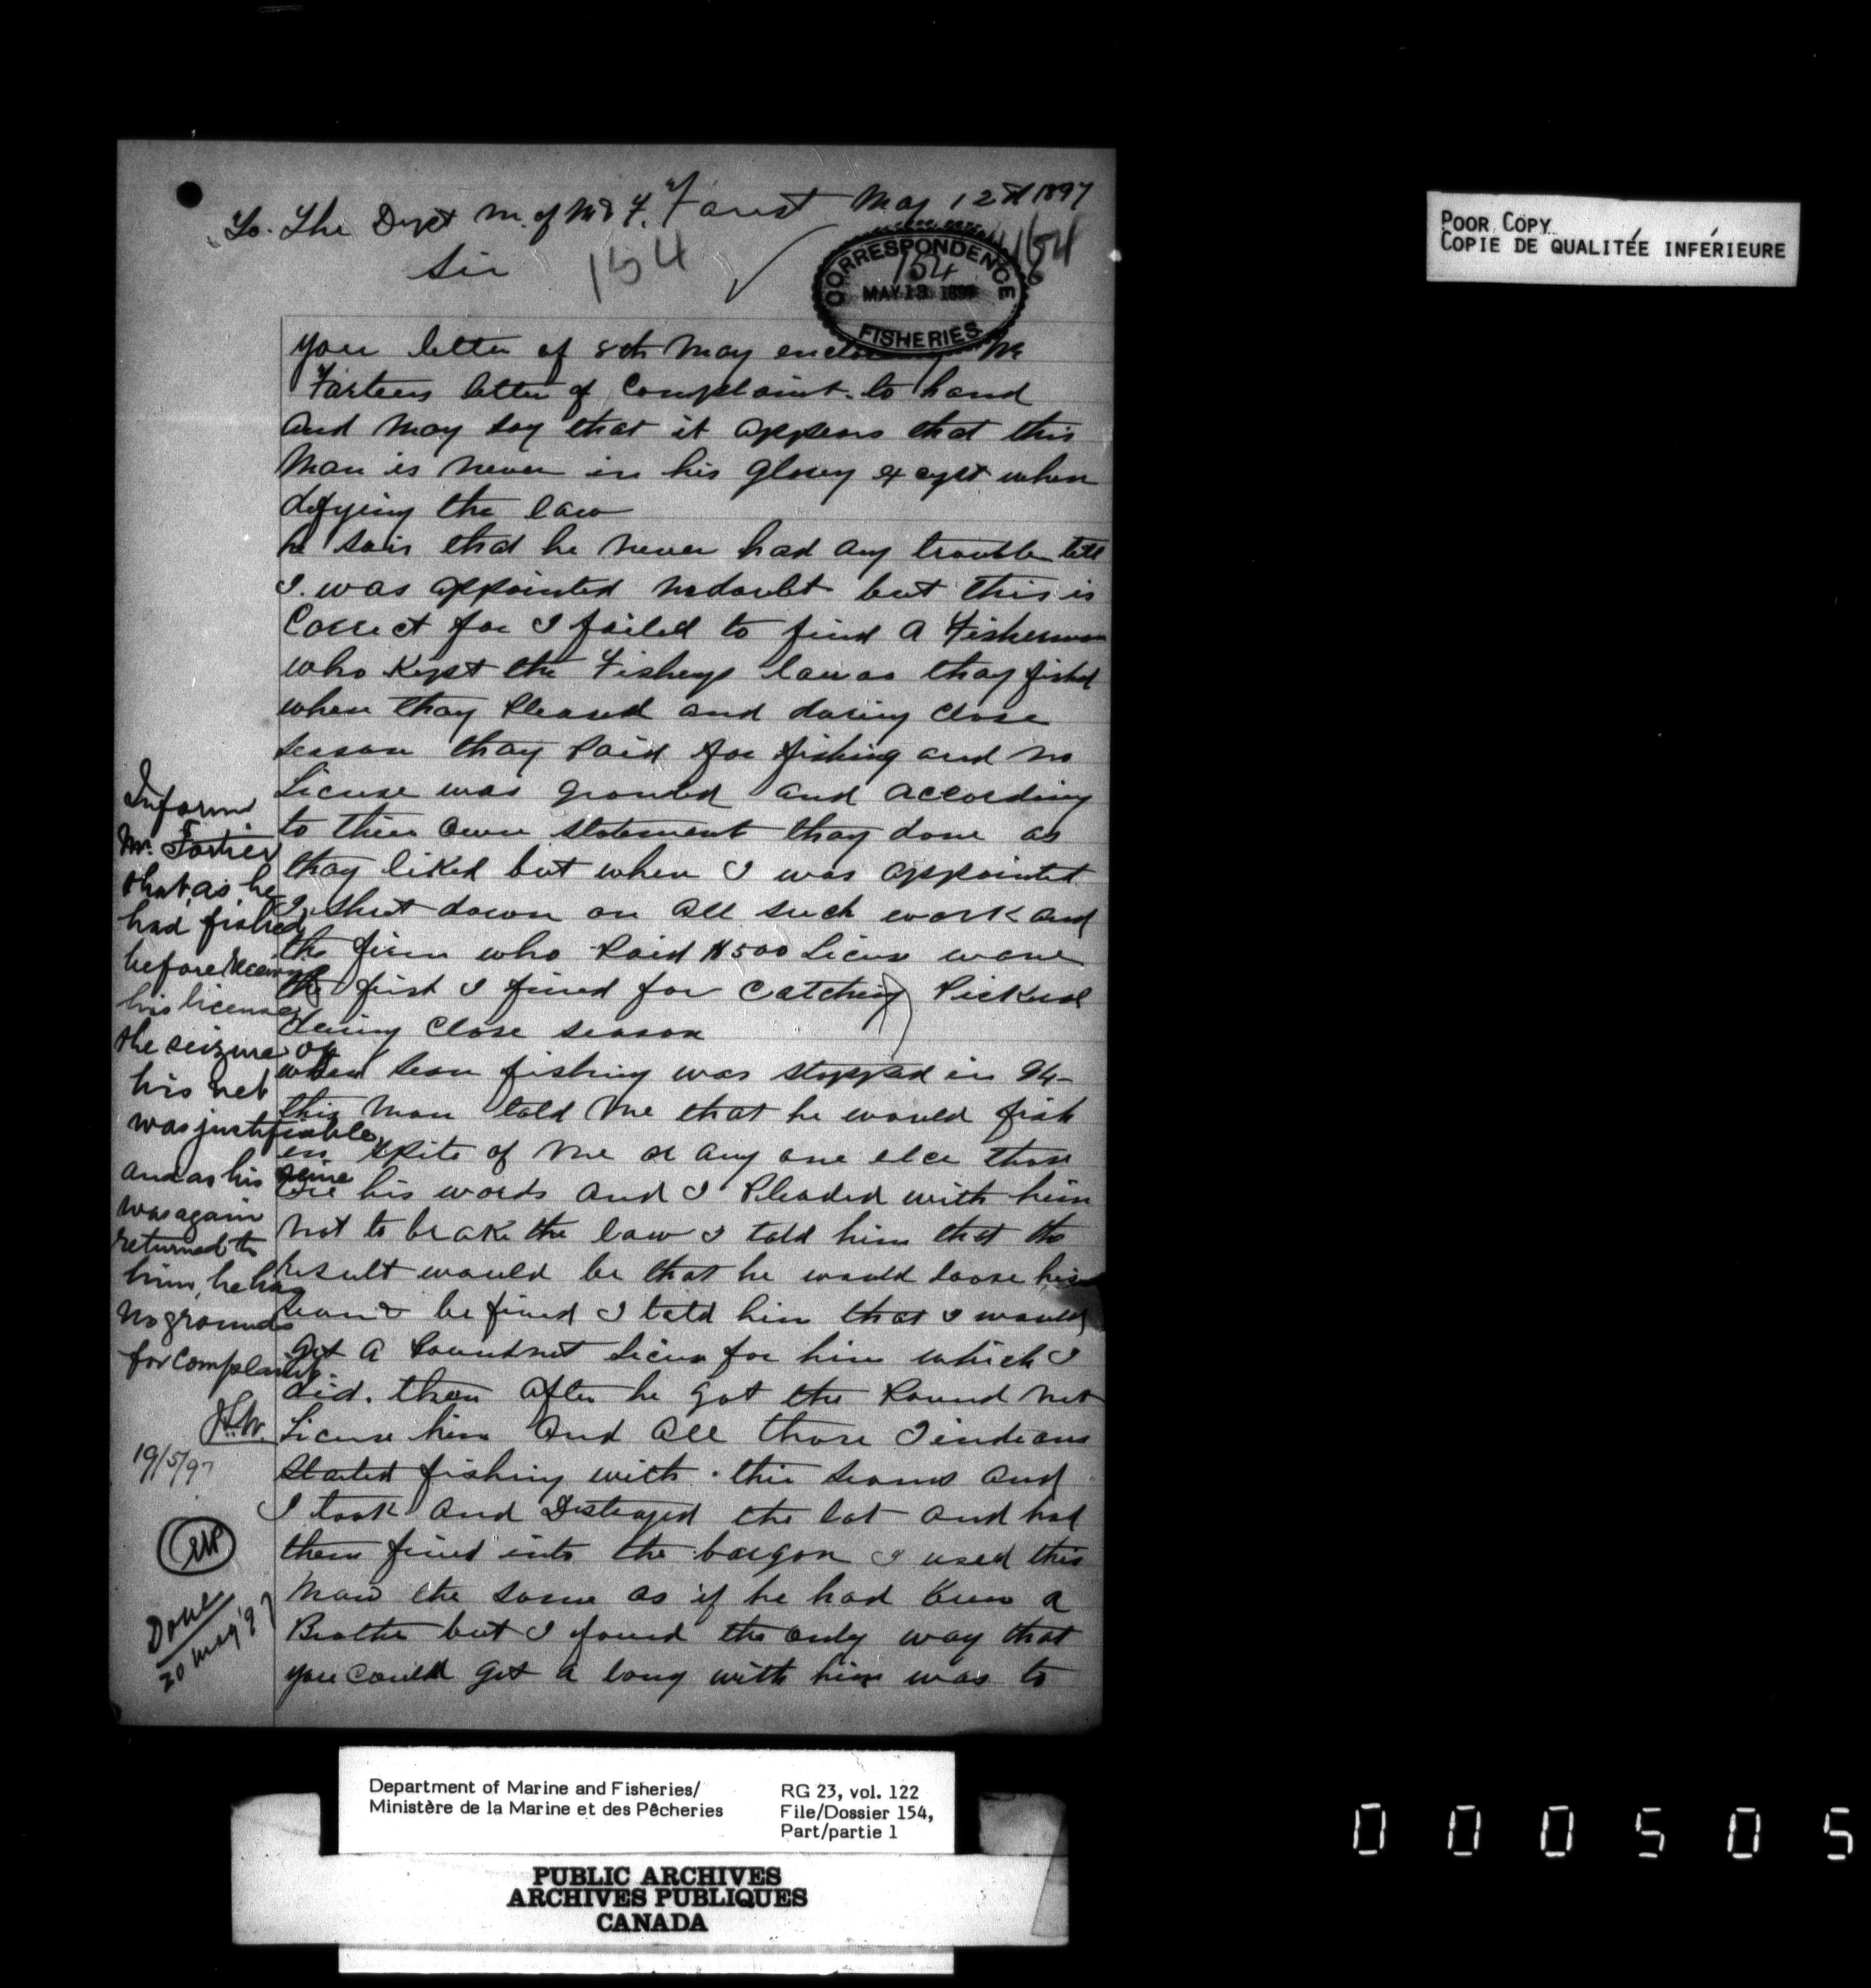 Forest May 12th 1897
To. The Dept M. of M & F.
Sir
154
154
CORRESPONDENCE
154
MAY 13 1897
FISHERIES
your letter of 8th May enclosing Mr
Fortiers letter of Complaint to hand
and may say that it appears that this
man is never in his glory except when
defying the law
he sais that he never had any trouble till
I was appointed nodoubt but this is
Correct for I failed to find a Fisherman
who Kept the Fishery law as thay fished
when thay Pleased and during close
season thay Paid for fishing and no
License was granted and according
to their own statement thay done as
thay liked but when I was appointed
I shut down on all such work and
the firm who Paid $500 License
the first I fined for Catching Pickeral
during close season
when sean fishing was stopped in 94-
this man told me that he would fish
in spite of me or any one elce those
are his words and I Pleaded with him
not to brake the law I told him that the
result would be that he would loose his
sean & be fined I told him that I would
get a Poundnet License for him which I
did. then after he got the Pound net
License him and all those Iindians
started fishing with their seans and
I took and Destroyed the lot and had
them fined into the bargon I used this
man the same as if he had been a
Brother but I found the only way that
you could get a long with him was to
Inform
Mr. Fortier
that, as he
had fished
before
his license
the seizure of
his net
was justifiable,
and as his seine
was again
returned to
him, he has
no grounds
for complaint.
19/5/97
Done
20 May '97
POOR COPY
COPIE DE QUALITÉE INFÉRIEURE
Department of Marine and Fisheries/
Ministère de la Marine et des Pêcheries
RG 23, vol. 122
File/Dossier 154,
Part/partie 1
PUBLIC ARCHIVES
ARCHIVES PUBLIQUES
CANADA
000505